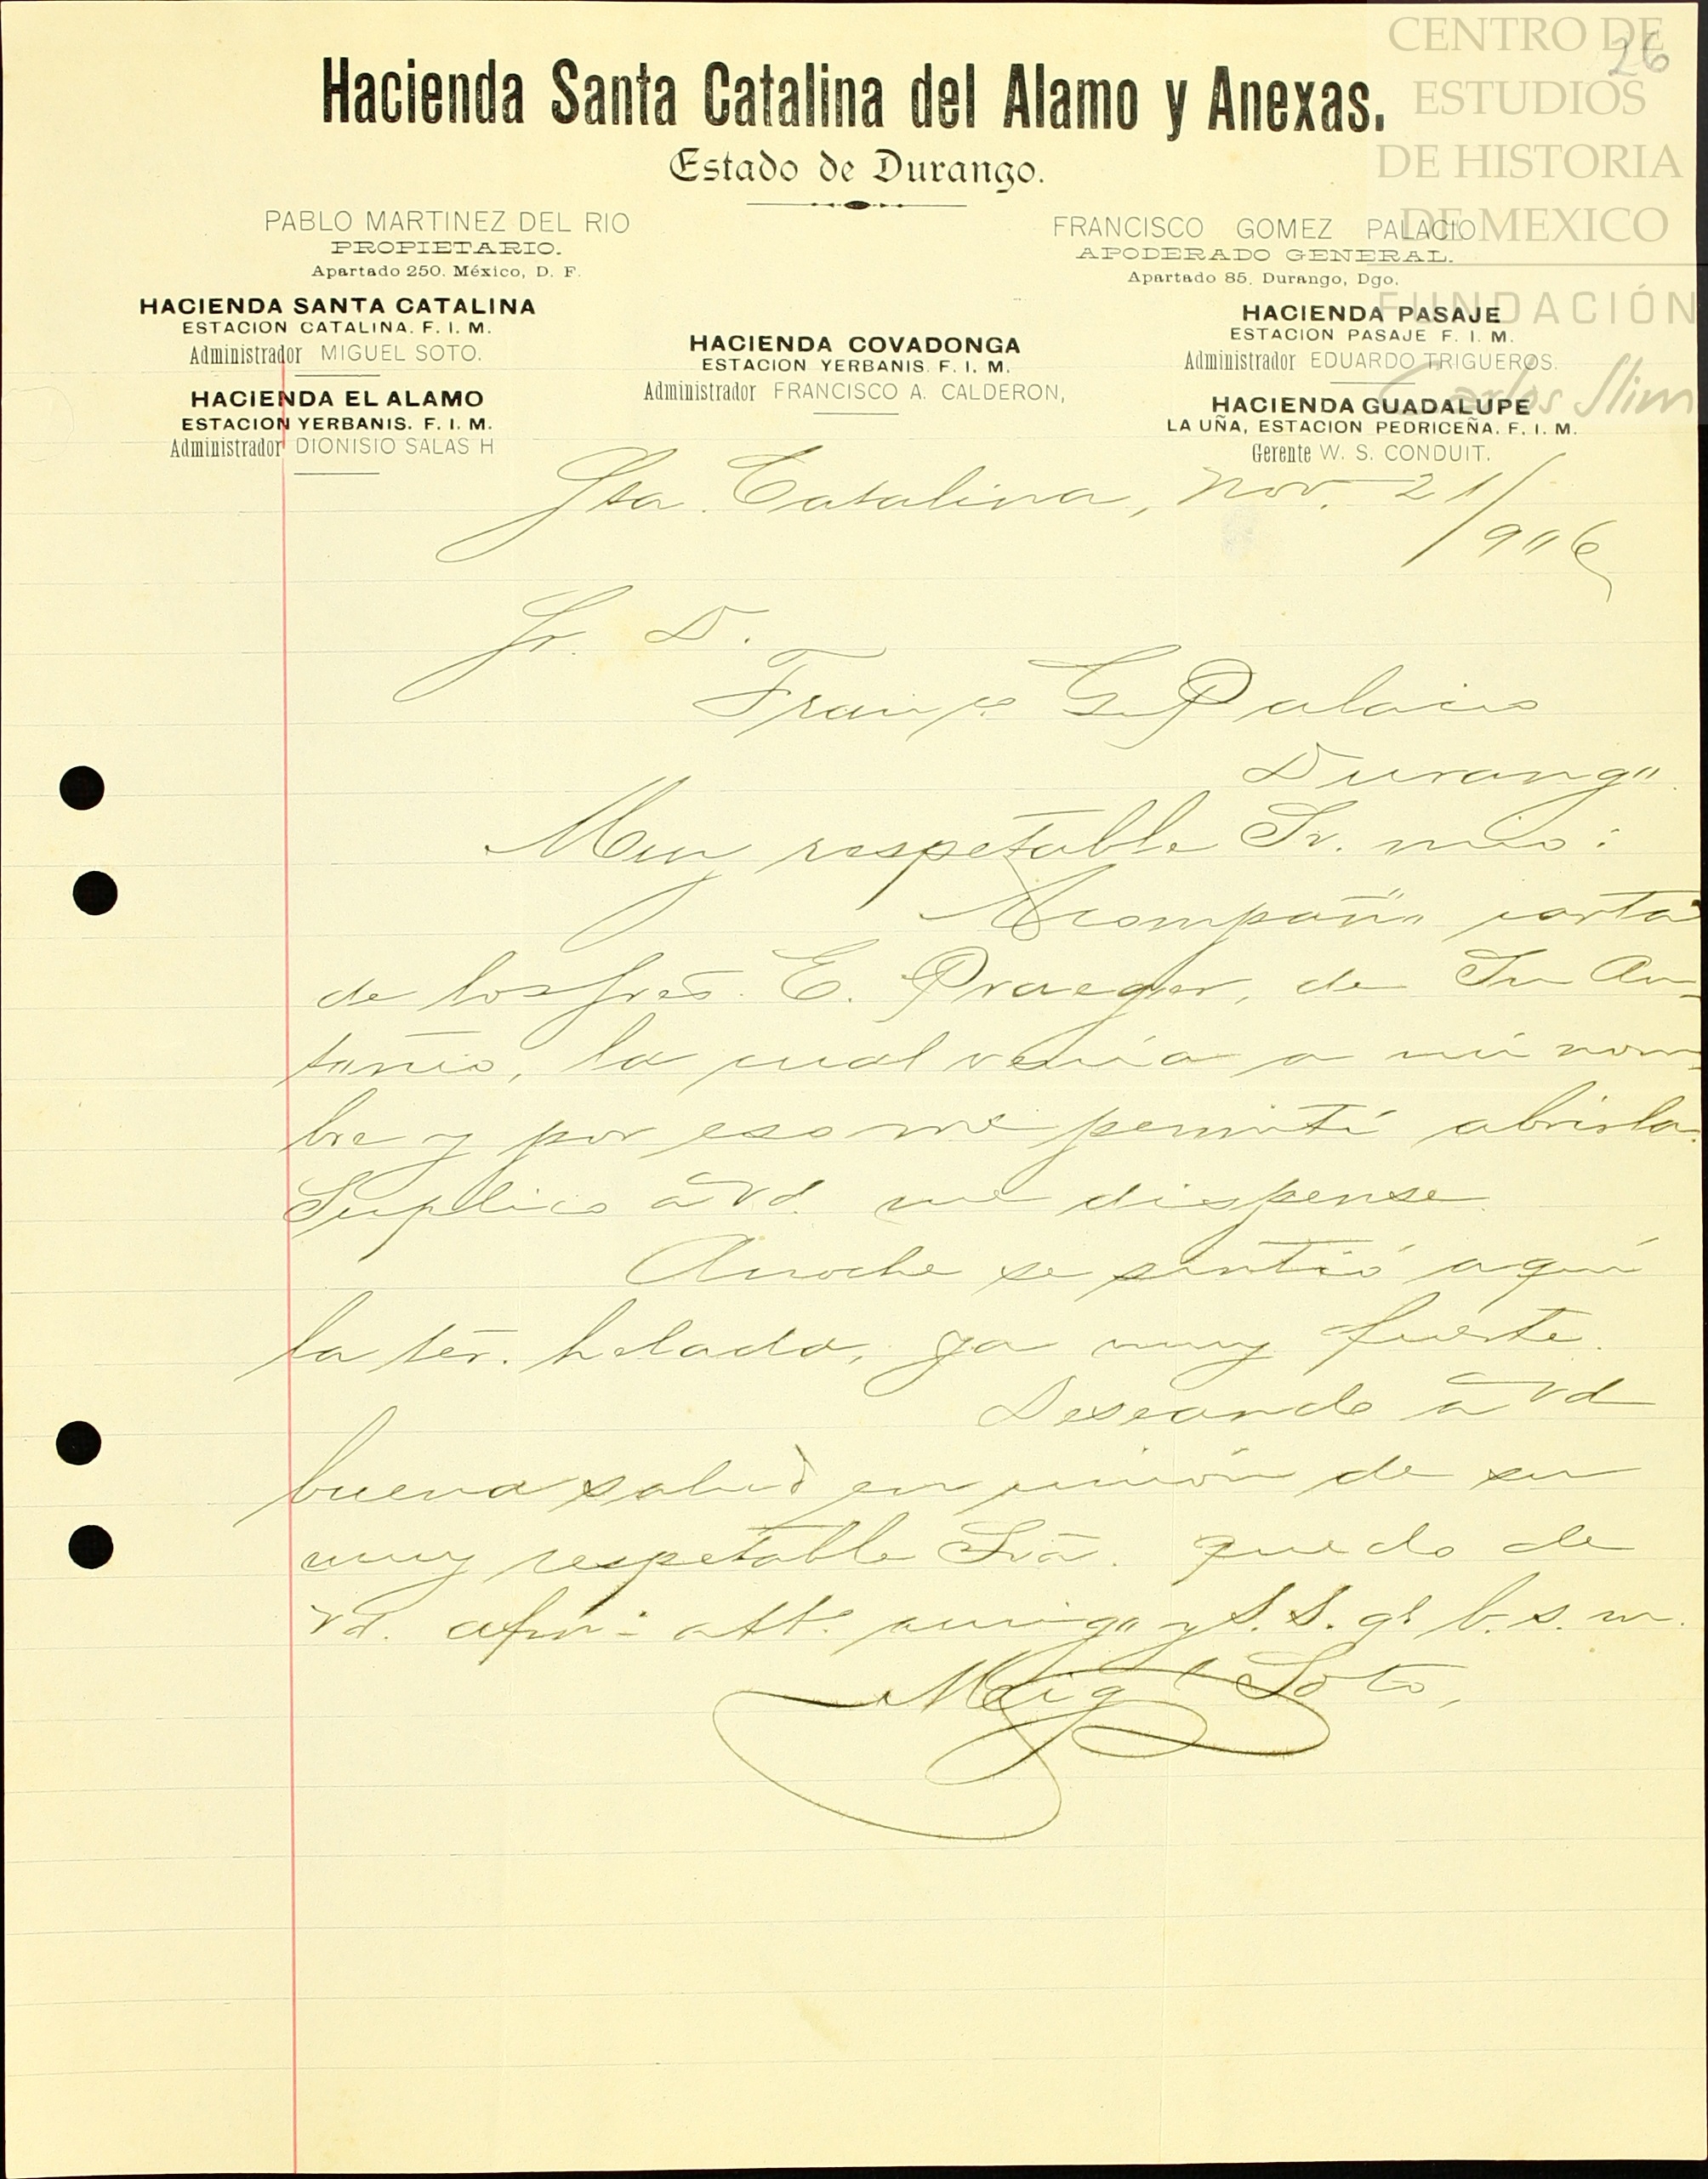 26
CENTRO DE
ESTUDIOS
DE HISTORIA
DE MEXICO
FUNDACIÓN
Carlos Slim
Hacienda Santa Catalina del Alamo y Anexas.
Estado de Durango.
PABLO MARTINEZ DEL RIO
PROPIETARIO.
Apartado 250. México, D. F.
FRANCISCO GOMEZ PALACIO
APODERADO GENERAL.
Apartado 85, Durango, Dgo.
HACIENDA SANTA CATALINA
ESTACION CATALINA. F. I. M.
Administrador MIGUEL SOTO.
HACIENDA EL ALAMO
ESTACION YERBANIS. F. I. M.
Administrador DIONISIO SALAS H
HACIENDA COVADONGA
ESTACION YERBANIS. F. I. M.
Administrador FRANCISCO A. CALDERON,
HACIENDA PASAJE
ESTACION PASAJE F. I. M.
Administrador EDUARDO TRIGUEROS.
HACIENDA GUADALUPE
LA UÑA, ESTACION PEDRICEÑA. F. I. M.
Gerente W. S. CONDUIT.
Sta. Catalina, Nov. 21/
906
Sr. D.
Franco G. Palacio
Durango.
Muy respetable Sr. mio:
Acompaño carta
de los Sres. E. Praeger, de Sn An-
tonio, la cual venía a mi nom-
bre y por eso me permití abrirla.
Suplico a Vd. me dispense.
Anoche se sintió aquí
la 1er. helada, ya muy fuerte.
Deseando a Vd
buena salud en unión de su
muy respetable Sra. quedo de
Vd. afmo. atto. amigo y S. S. q. b. s. m.
Migl Soto,